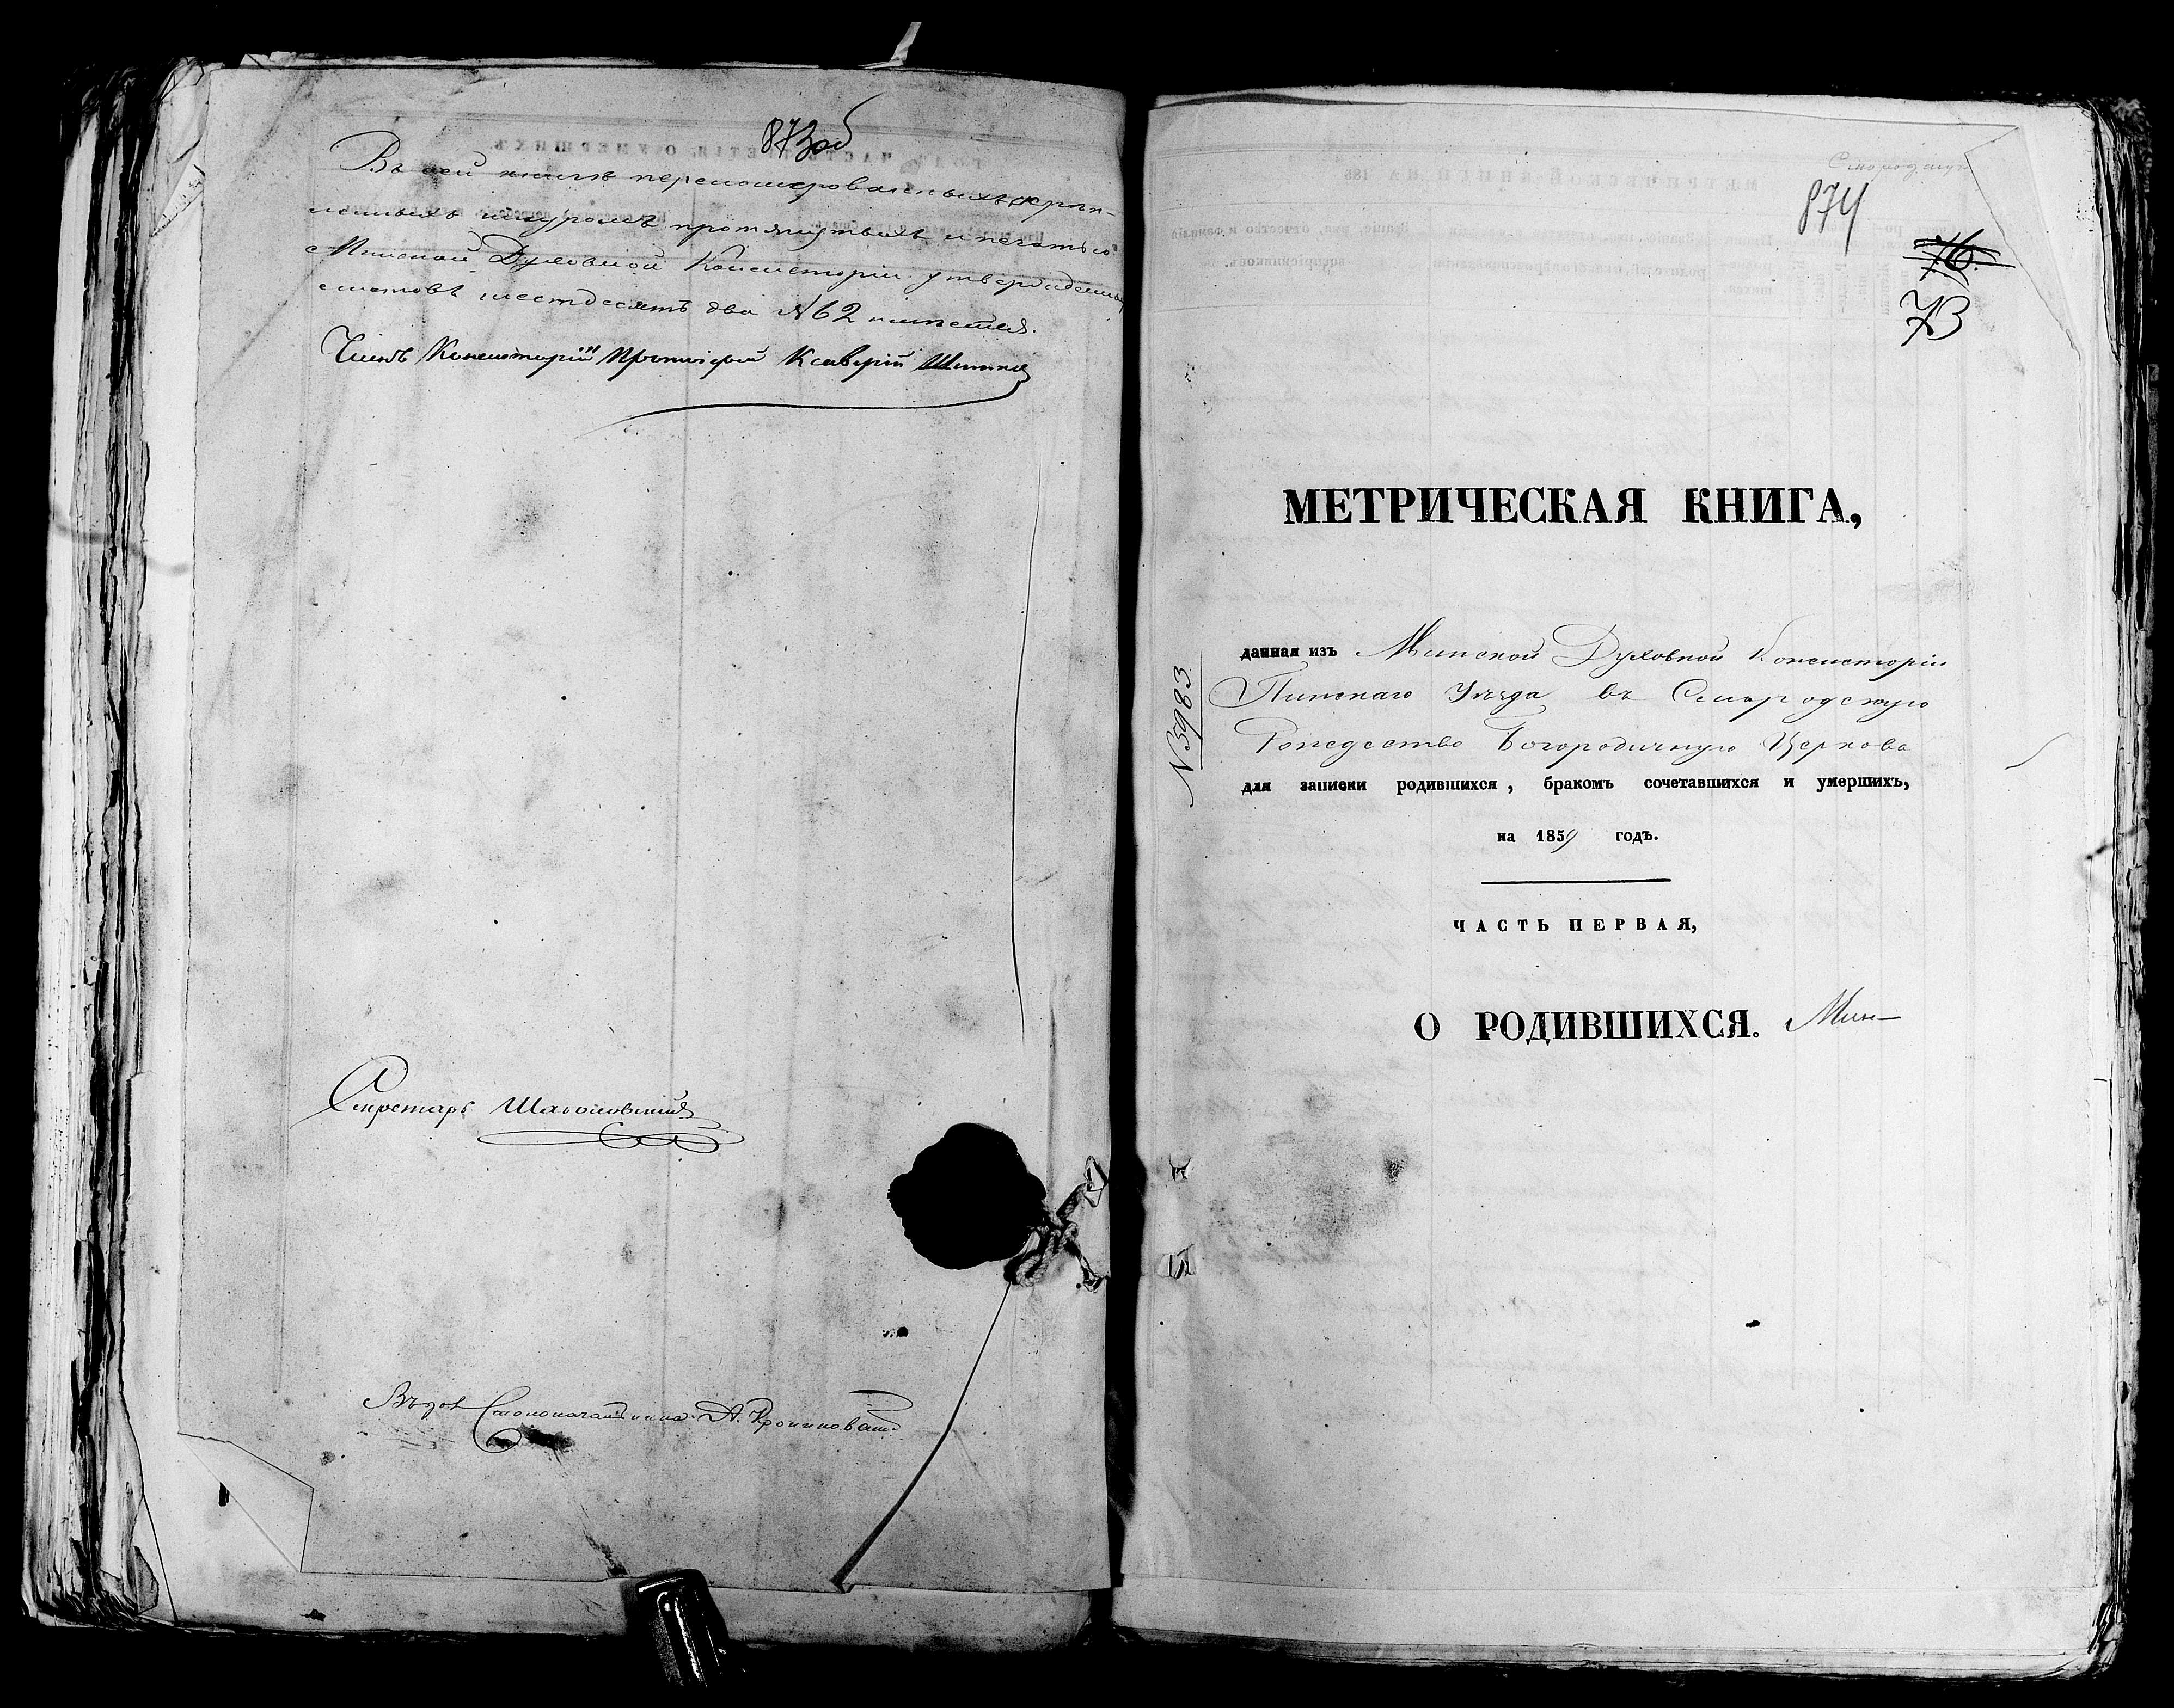 873об
Въ сей книгѣ перенумерованныхъ скрѣп-
ленныхъ шнуромъ протянутыхъ и печатью
Минской Духовной Консисторіи утвержденныхъ
листовъ шестдесятъ два №62 имѣется.
Членъ Консисторіи Протоіерей Ксаверій
Секретарь
Столоначальника А.
874
76.
73
МЕТРИЧЕСКАЯ КНИГА,
данная изъ Минской Духовной Консисторіи
Пинскаго Уѣзда въ Смародскую
Рождество Богородичную Церковь
для записки родившихся, бракомъ сочетавшихся и умершихъ,
на 1859 годъ.
ЧАСТЬ ПЕРВАЯ,
О РОДИВШИХСЯ. Мин-
№3983